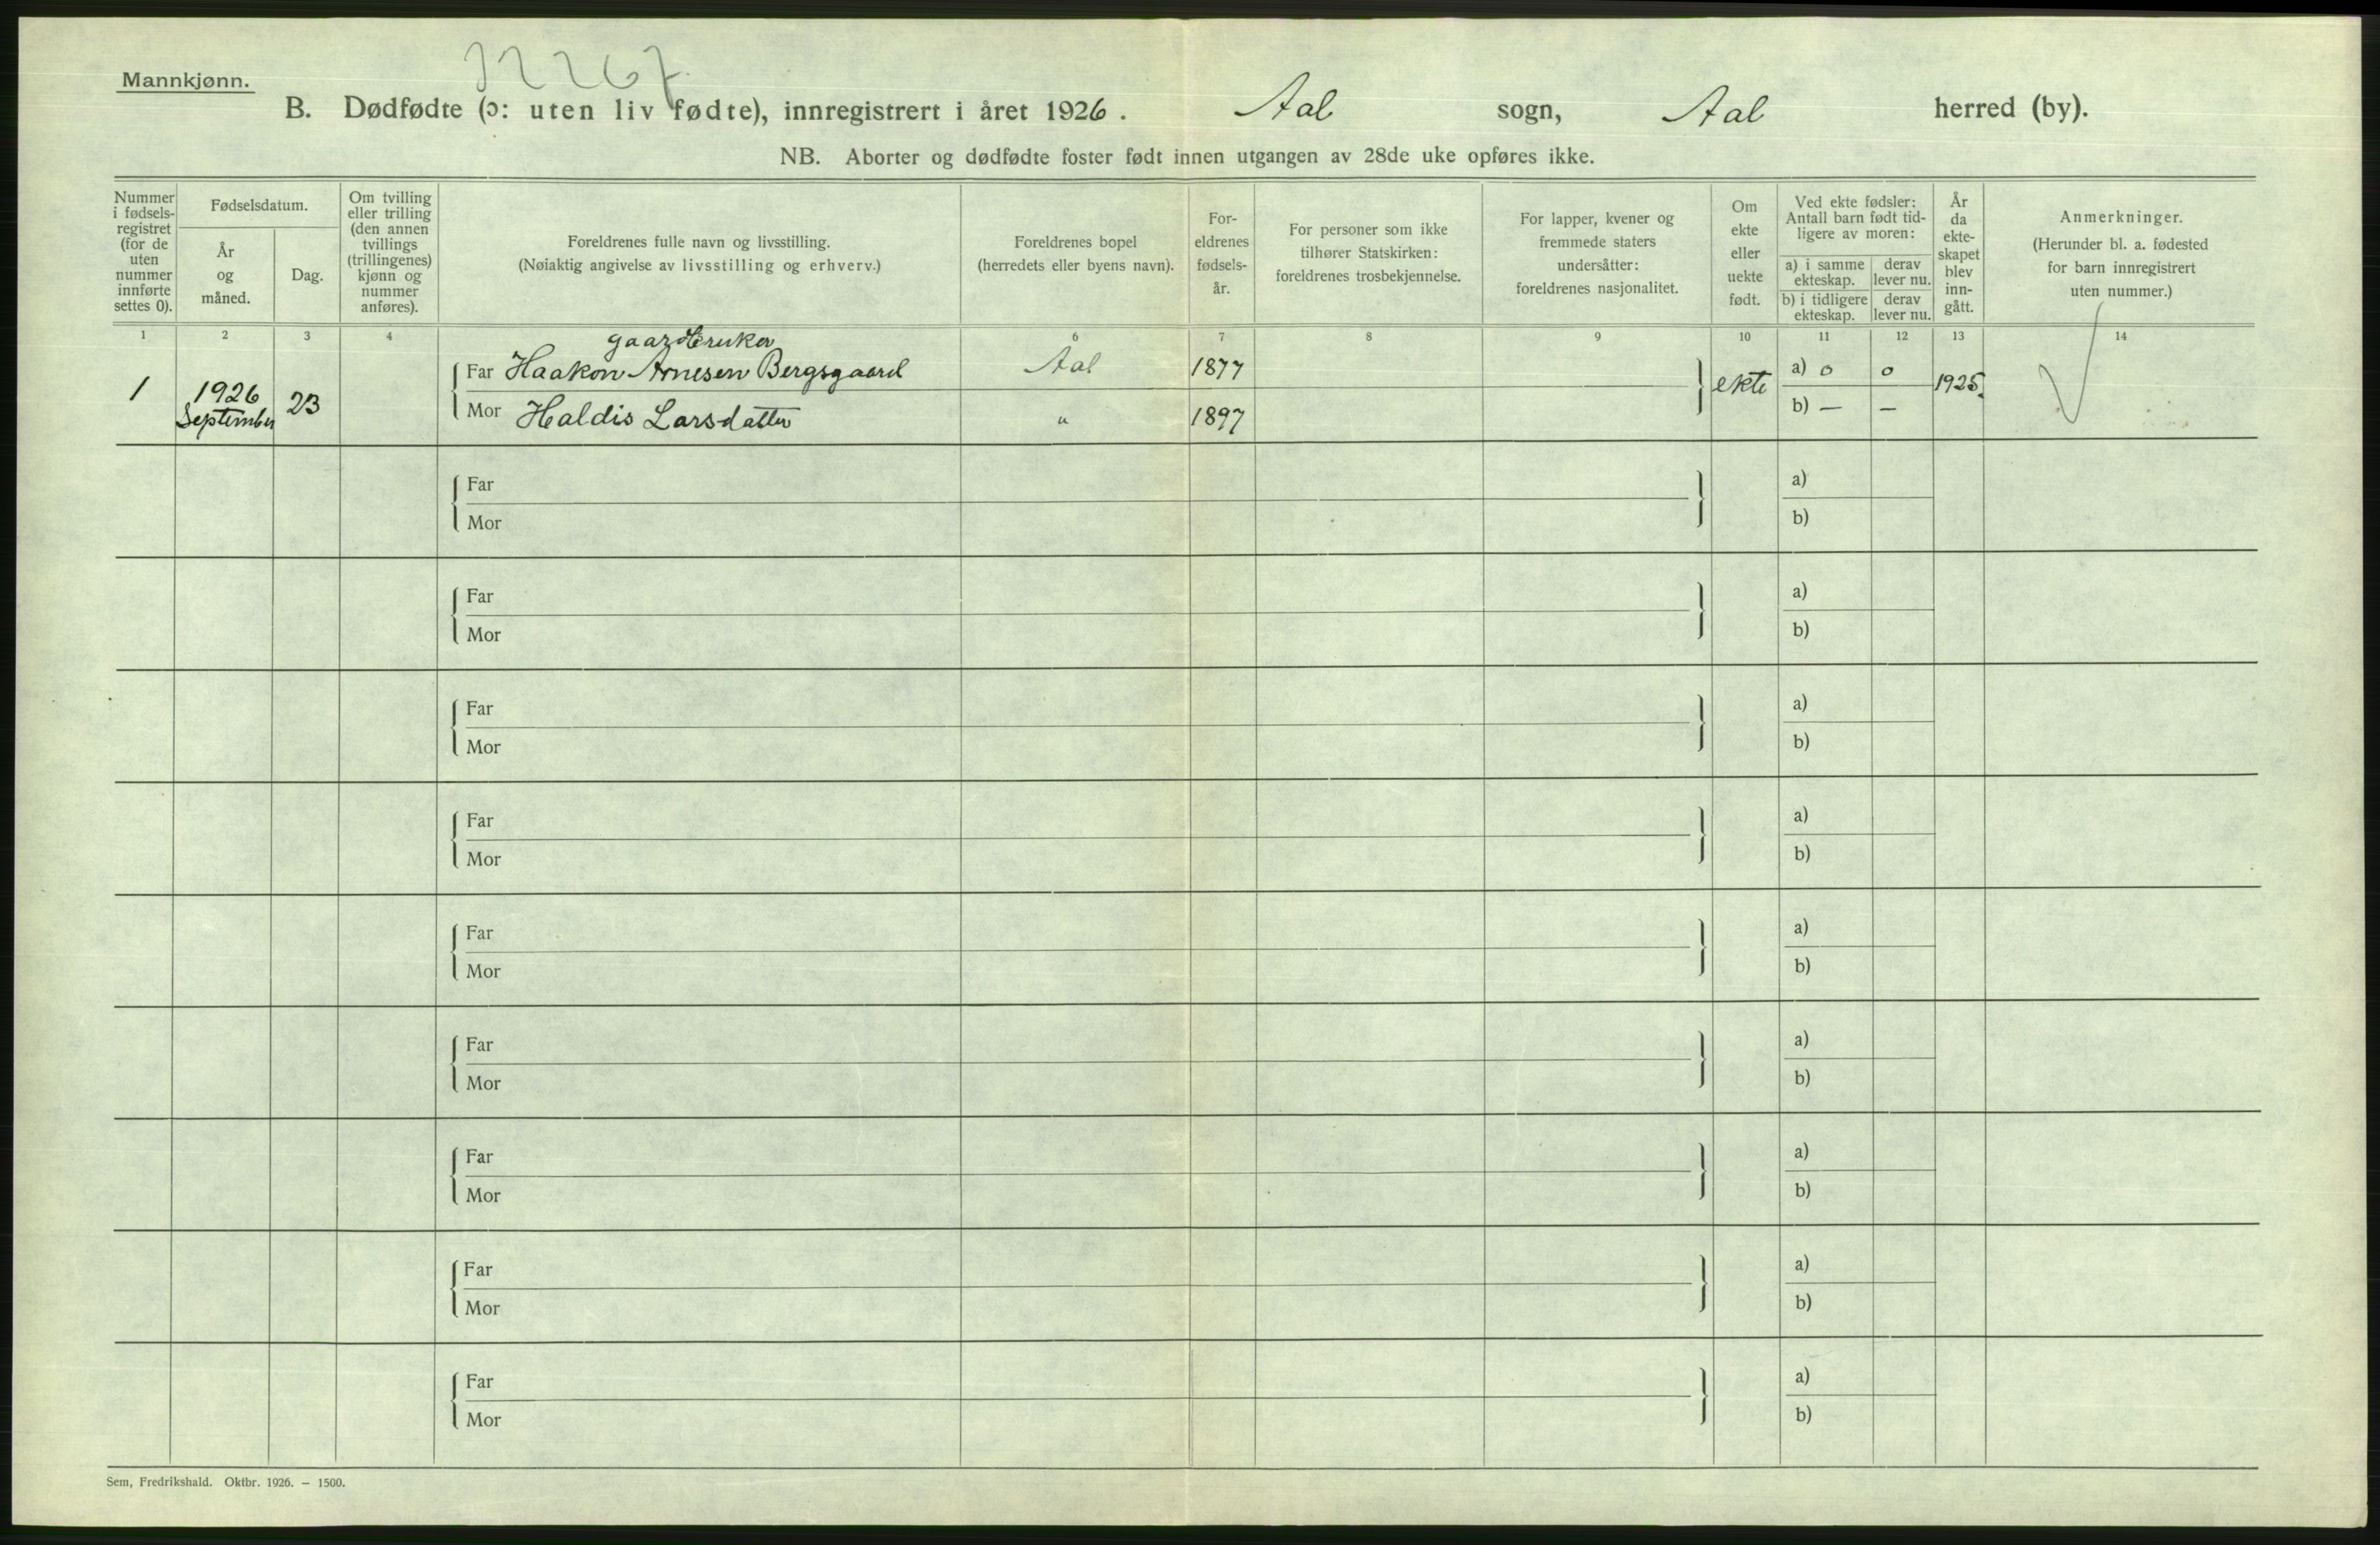 Mannkjønn.
B. Dødfødte (ɔ: uten liv fødte), innregistrert i året 1926. Aal sogn, Aal herred (by).
NB. Aborter og dødfødte foster født innen utgangen av 28de uke opføres ikke.
Nummer
i fødsels-
registret
(for de
uten
nummer
innførte
settes 0).
Fødselsdatum.
År
og
måned.
Dag.
Om tvilling
eller trilling
(den annen
tvillings
(trillingenes)
kjønn og
nummer
anføres).
Foreldrenes fulle navn og livsstilling.
(Nøiaktig angivelse av livsstilling og erhverv.)
Foreldrenes bopel
(herredets eller byens navn).
For-
eldrenes
fødsels-
år.
For personer som ikke
tilhører Statskirken:
foreldrenes trosbekjennelse.
For lapper, kvener og
fremmede staters
undersåtter:
foreldrenes nasjonalitet.
Om
ekte
eller
uekte
født.
Ved ekte fødsler:
Antall barn født tid-
ligere av moren:
a) i samme
ekteskap.
derav
lever nu.
b) i tidligere
ekteskap.
derav
lever nu.
År
da
ekte-
skapet
blev
inn-
gått.
Anmerkninger.
(Herunder bl. a. fødested
for barn innregistrert
uten nummer.)
1 2 3 4 6 7 8 9 10 11 12 13 14
gaardbruker
1 1926 September 23
Far Haakon Arnesen Bergsgaard Aal 1877 ekte a) 0 0 1925.
Mor Haldis Larsdatter " 1897 b) — —
Far a)
Mor b)
Far a)
Mor b)
Far a)
Mor b)
Far a)
Mor b)
Far a)
Mor b)
Far a)
Mor b)
Far a)
Mor b)
Far a)
Mor b)
Far a)
Mor b)
Sem, Fredrikshald. Oktbr. 1926. – 1500.